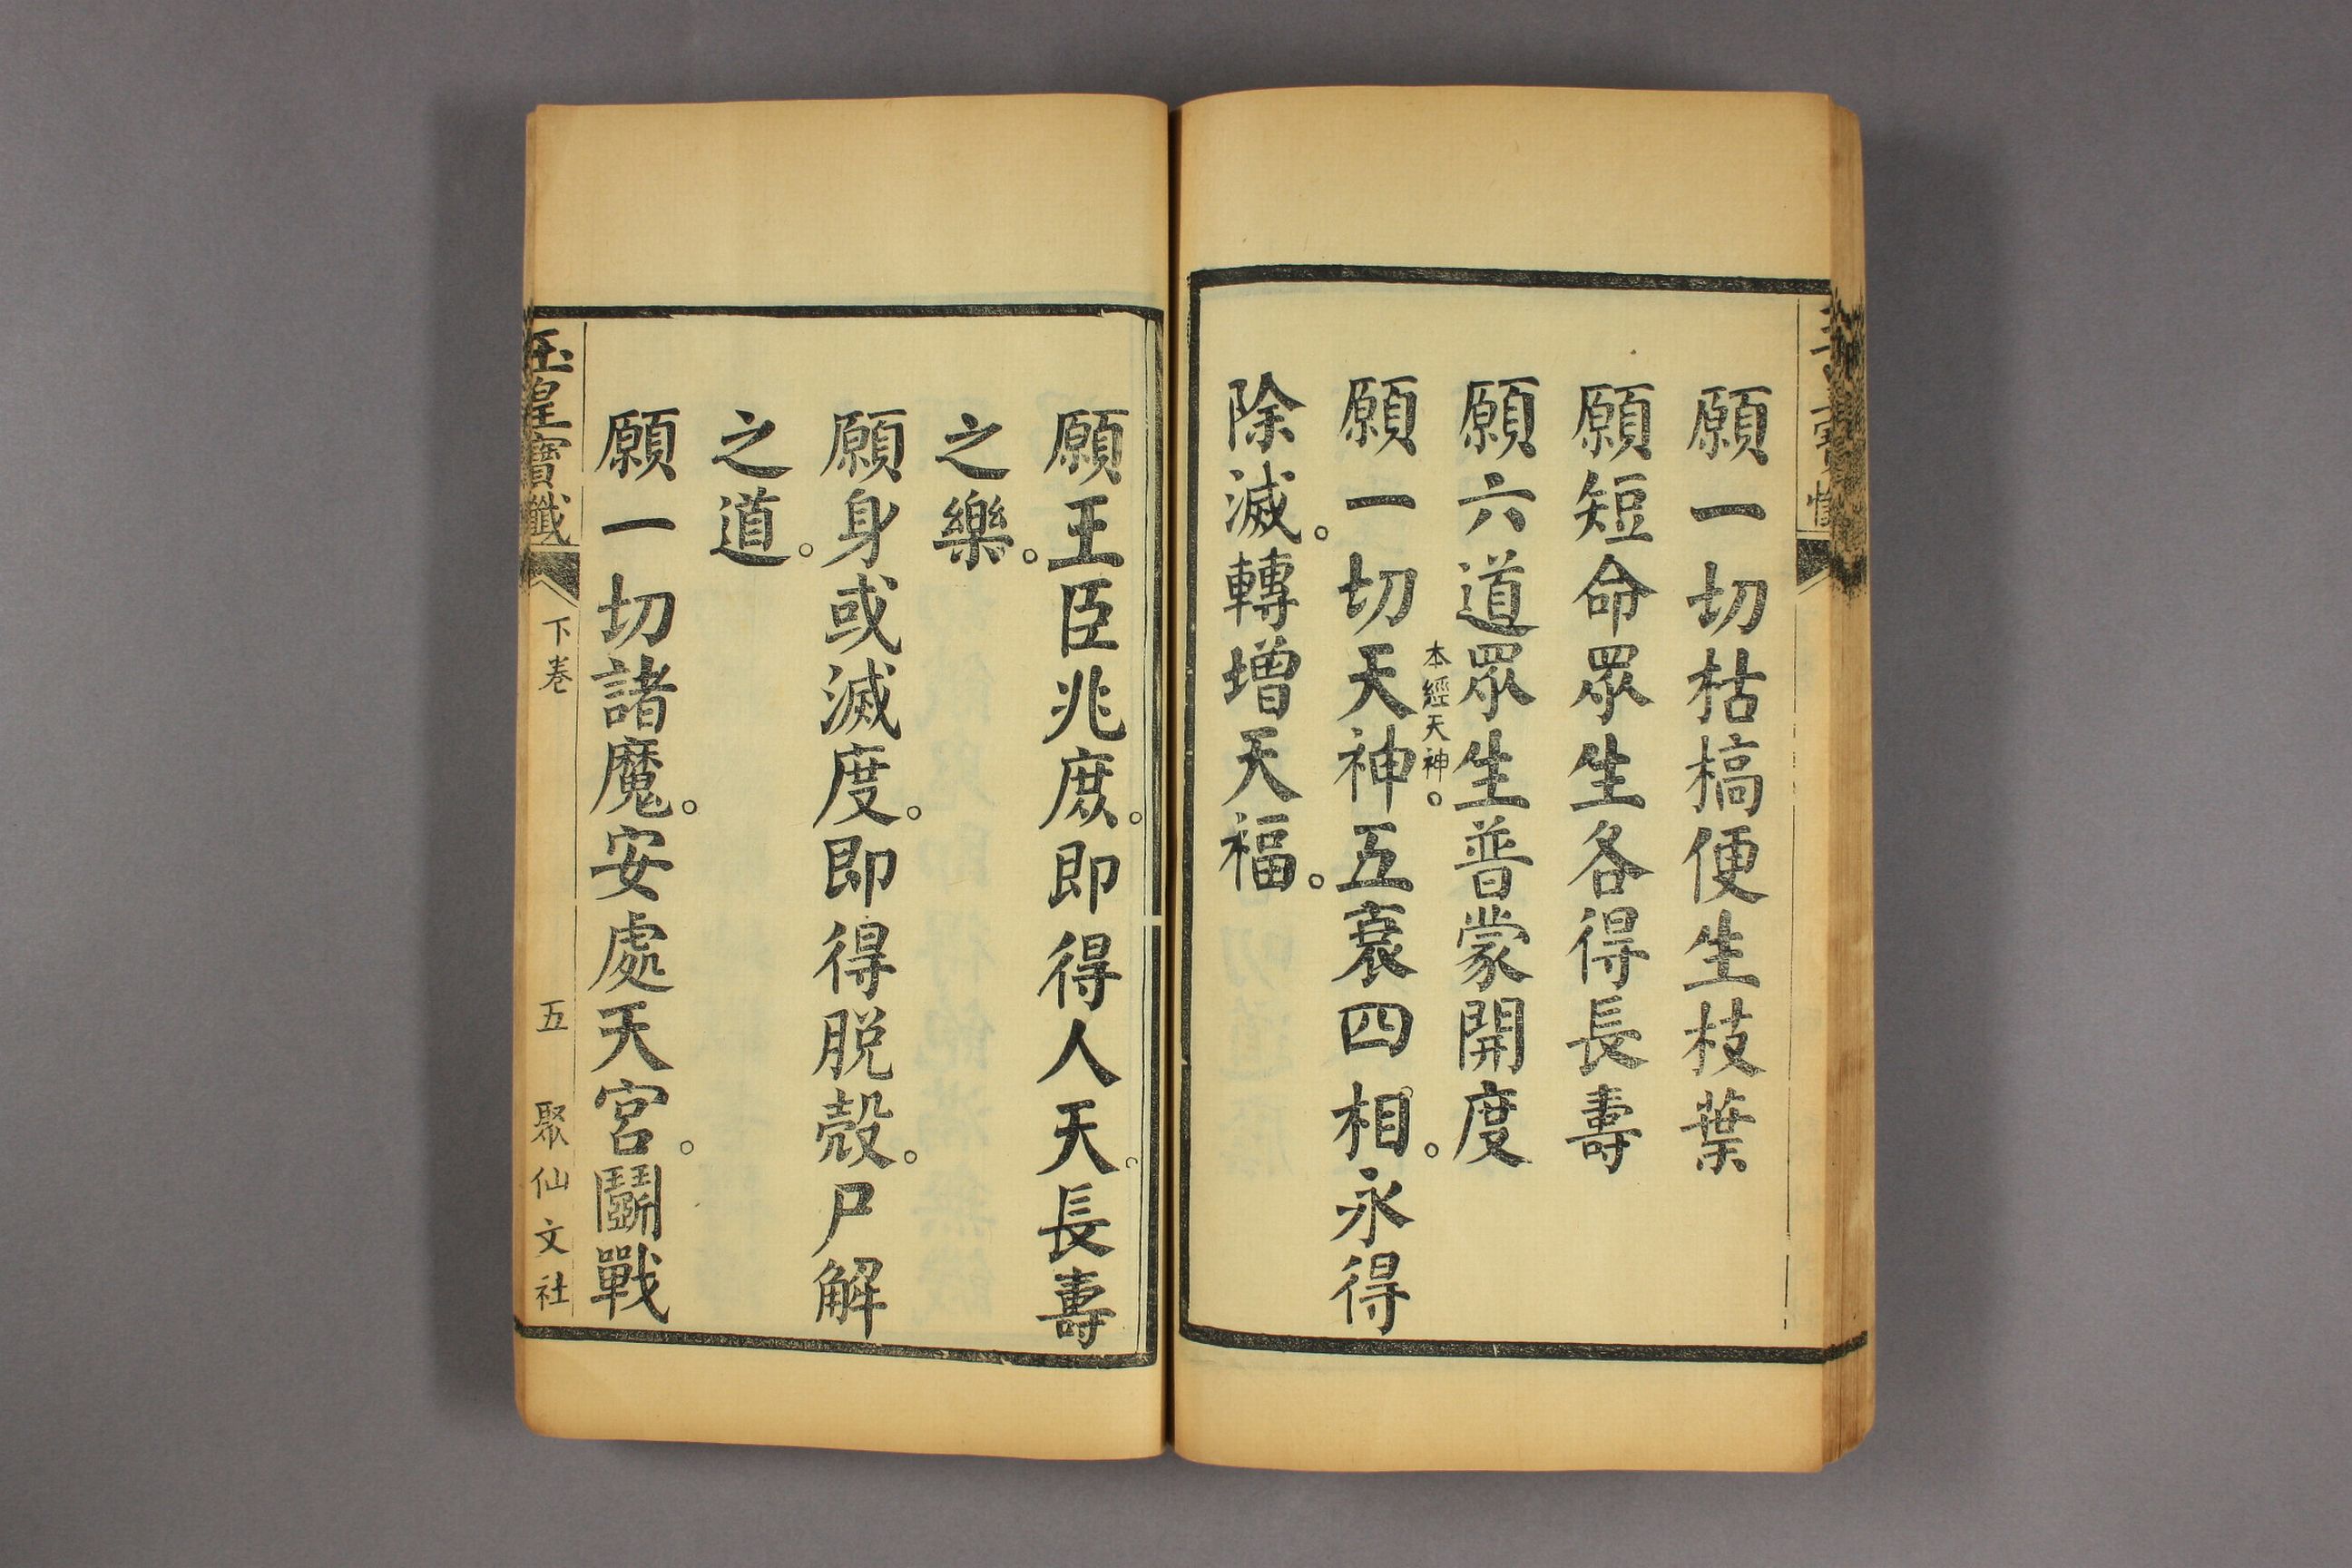 願一切枯槁便生枝葉
願短命眾生各得長壽
願六道眾生普蒙開度
本經天神。
願一切天神五衰四相。永得
除滅。轉增天福。
願王臣兆庶。即得人天。長壽
之樂。
願身或滅度。即得脫殼。尸解
之道。
願一切諸魔。安處天宮。鬬戰
玉皇寶懺 下卷 五 聚仙文社